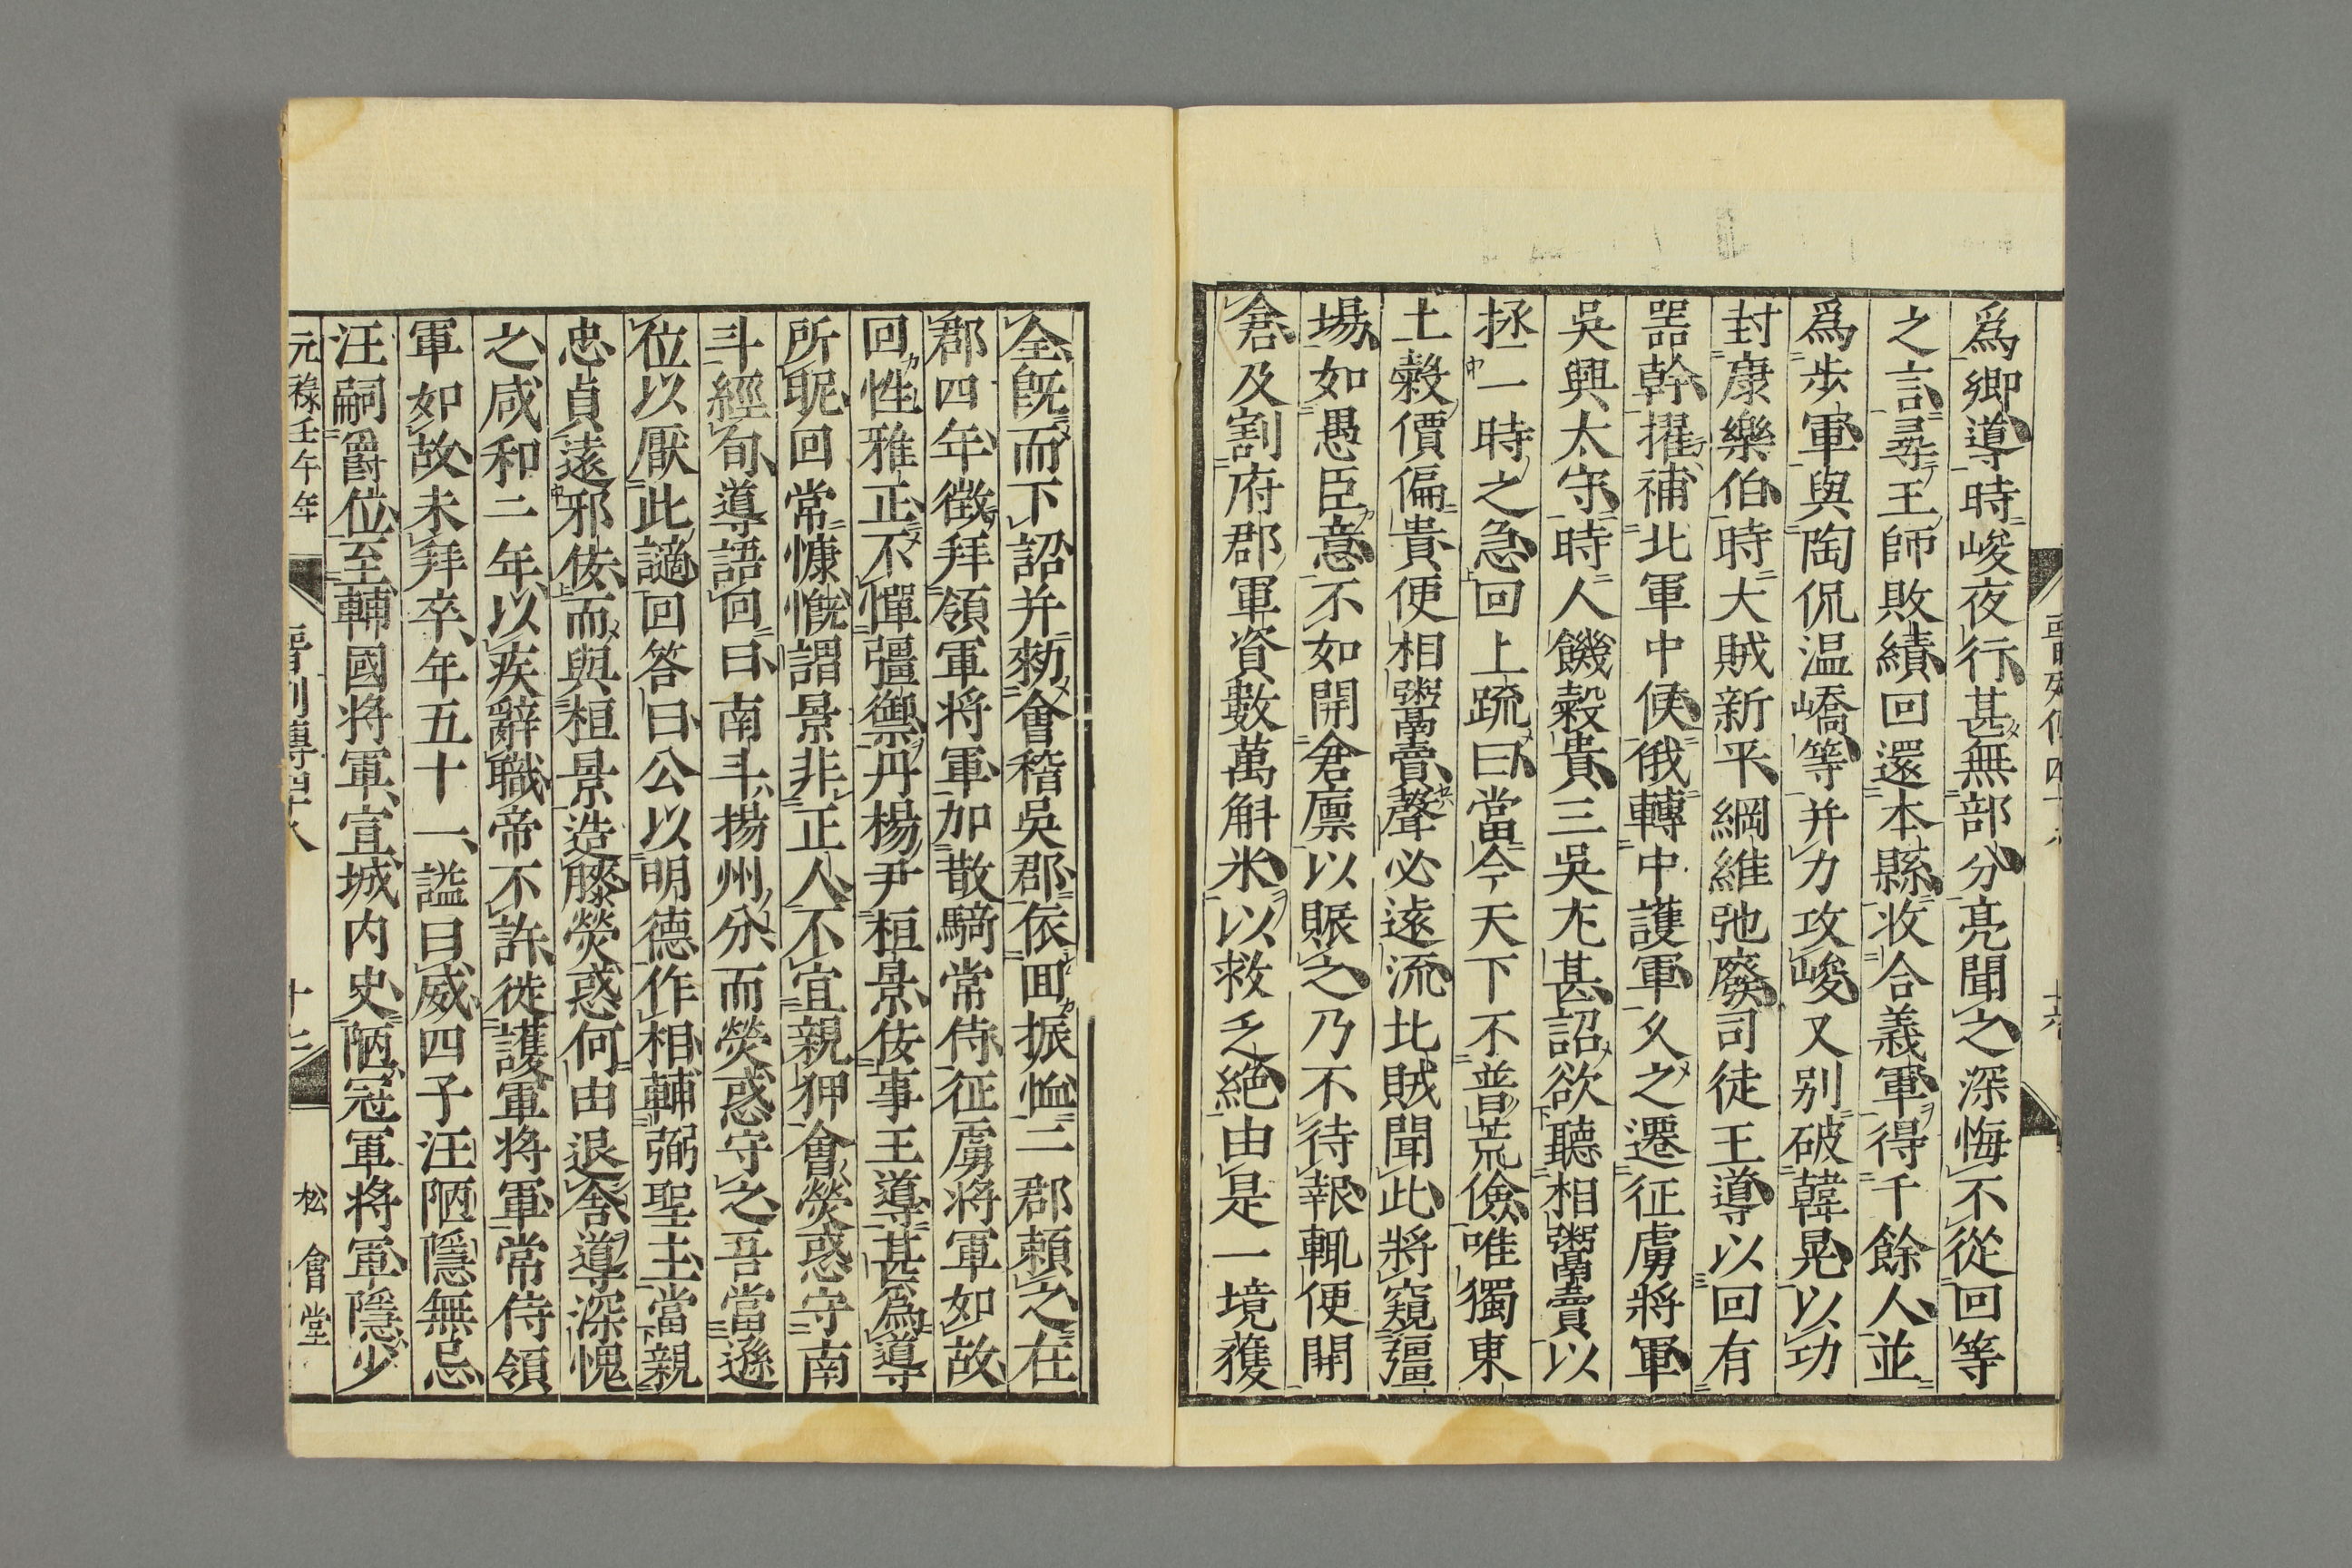 爲鄉導時峻夜行甚無部分亮聞之深悔不從回等
之言尋王師敗績回還本縣收合義軍得千餘人並
爲步軍與陶侃温嶠等并力攻峻又别破韓晃以功
封康樂伯時大賊新平綱維弛廢司徒王導以回有
噐幹擢補北軍中候俄轉中護軍久之遷征虜將軍
吳興太守時人饑穀貴三吳尤甚詔欲聽相鬻賣以
拯一時之急回上疏曰當今天下不普荒儉唯獨東
土穀價偏貴便相鬻賣聲必遠流北賊聞此將窺疆
場如愚臣意不如開倉廩以賑之乃不待報輒便開
倉及割府郡軍資數萬斛米以救乏絶由是一境獲
全旣而下詔并勑會稽吳郡依回振恤二郡賴之在
郡四年徵拜領軍将軍加散騎常侍征虜將軍如故
回性雅正不憚彊禦丹楊尹桓景佞事王導甚爲導
所昵回常慷慨謂景非正人不宜親狎會熒惑守南
斗經旬導語回曰南斗揚州分而熒惑守之吾當遜
位以厭此讁回答曰公以明德作相輔弼聖主當親
忠貞遠邪佞而與桓景造膝熒惑何由退舍導深愧
之咸和二年以疾辭職帝不許徙護軍将軍常侍領
軍如故未拜卒年五十一謚曰威四子汪陋隱無忌
汪嗣爵位至輔國将軍宣城内史陋冠軍将軍隱少
元祿壬午年 晋列傳四十八 十七 松會堂